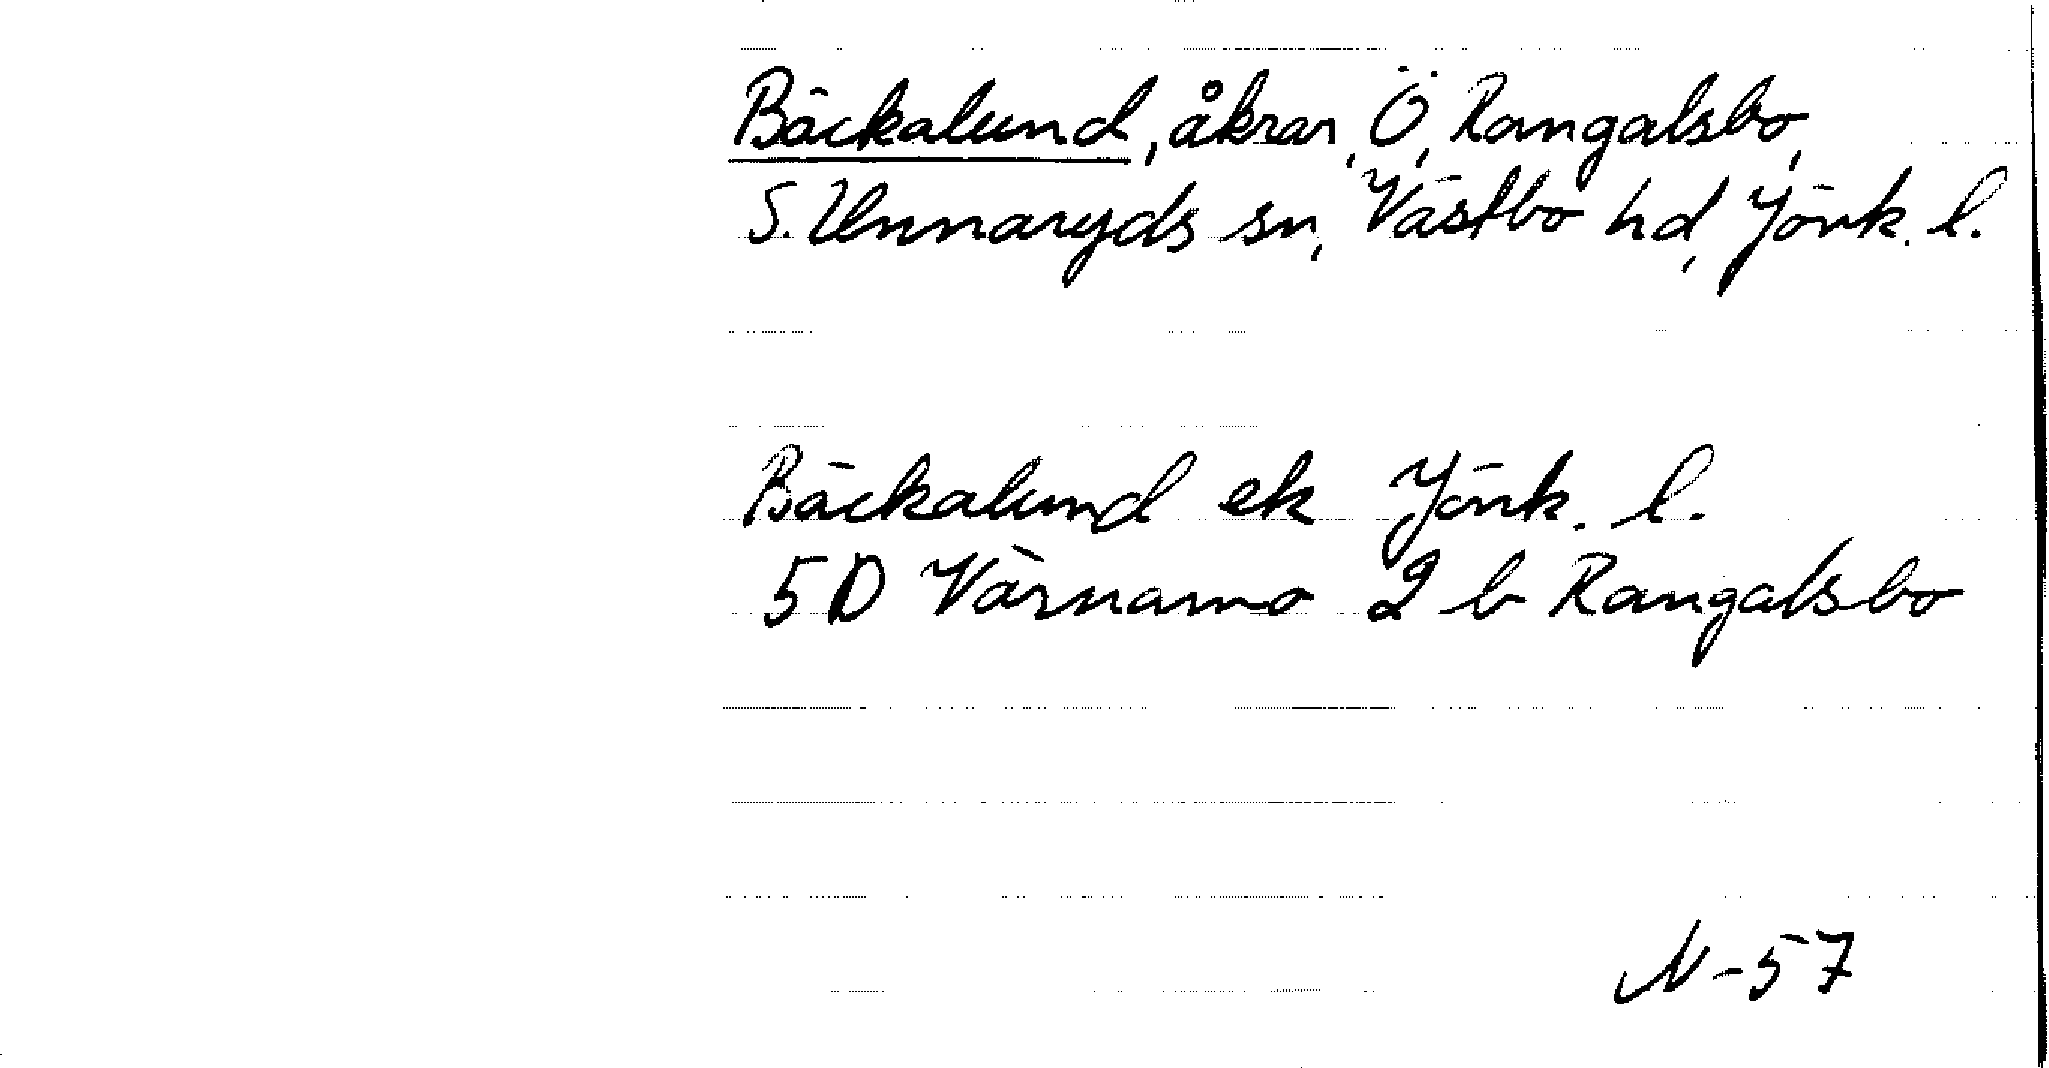 Bäckalund, åkrar, Ö, Rangalsbo,
S. Unnaryds sn, Västbo hd, Jönk. l.
Bäckalund ek Jönk. l.
5 D Värnamo 2 b Rangalsbo
N-57